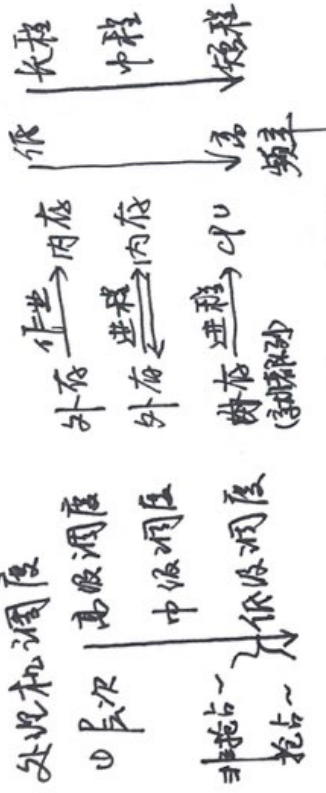 处理机调度
①层次 高级调度 外存 作业→ 内存 低 长程
中级调度 外存 进程⇌ 内存 中程
非抢占~ 低级调度 内存 进程→ CPU 高 短程
抢占~ (就绪队列) 频率